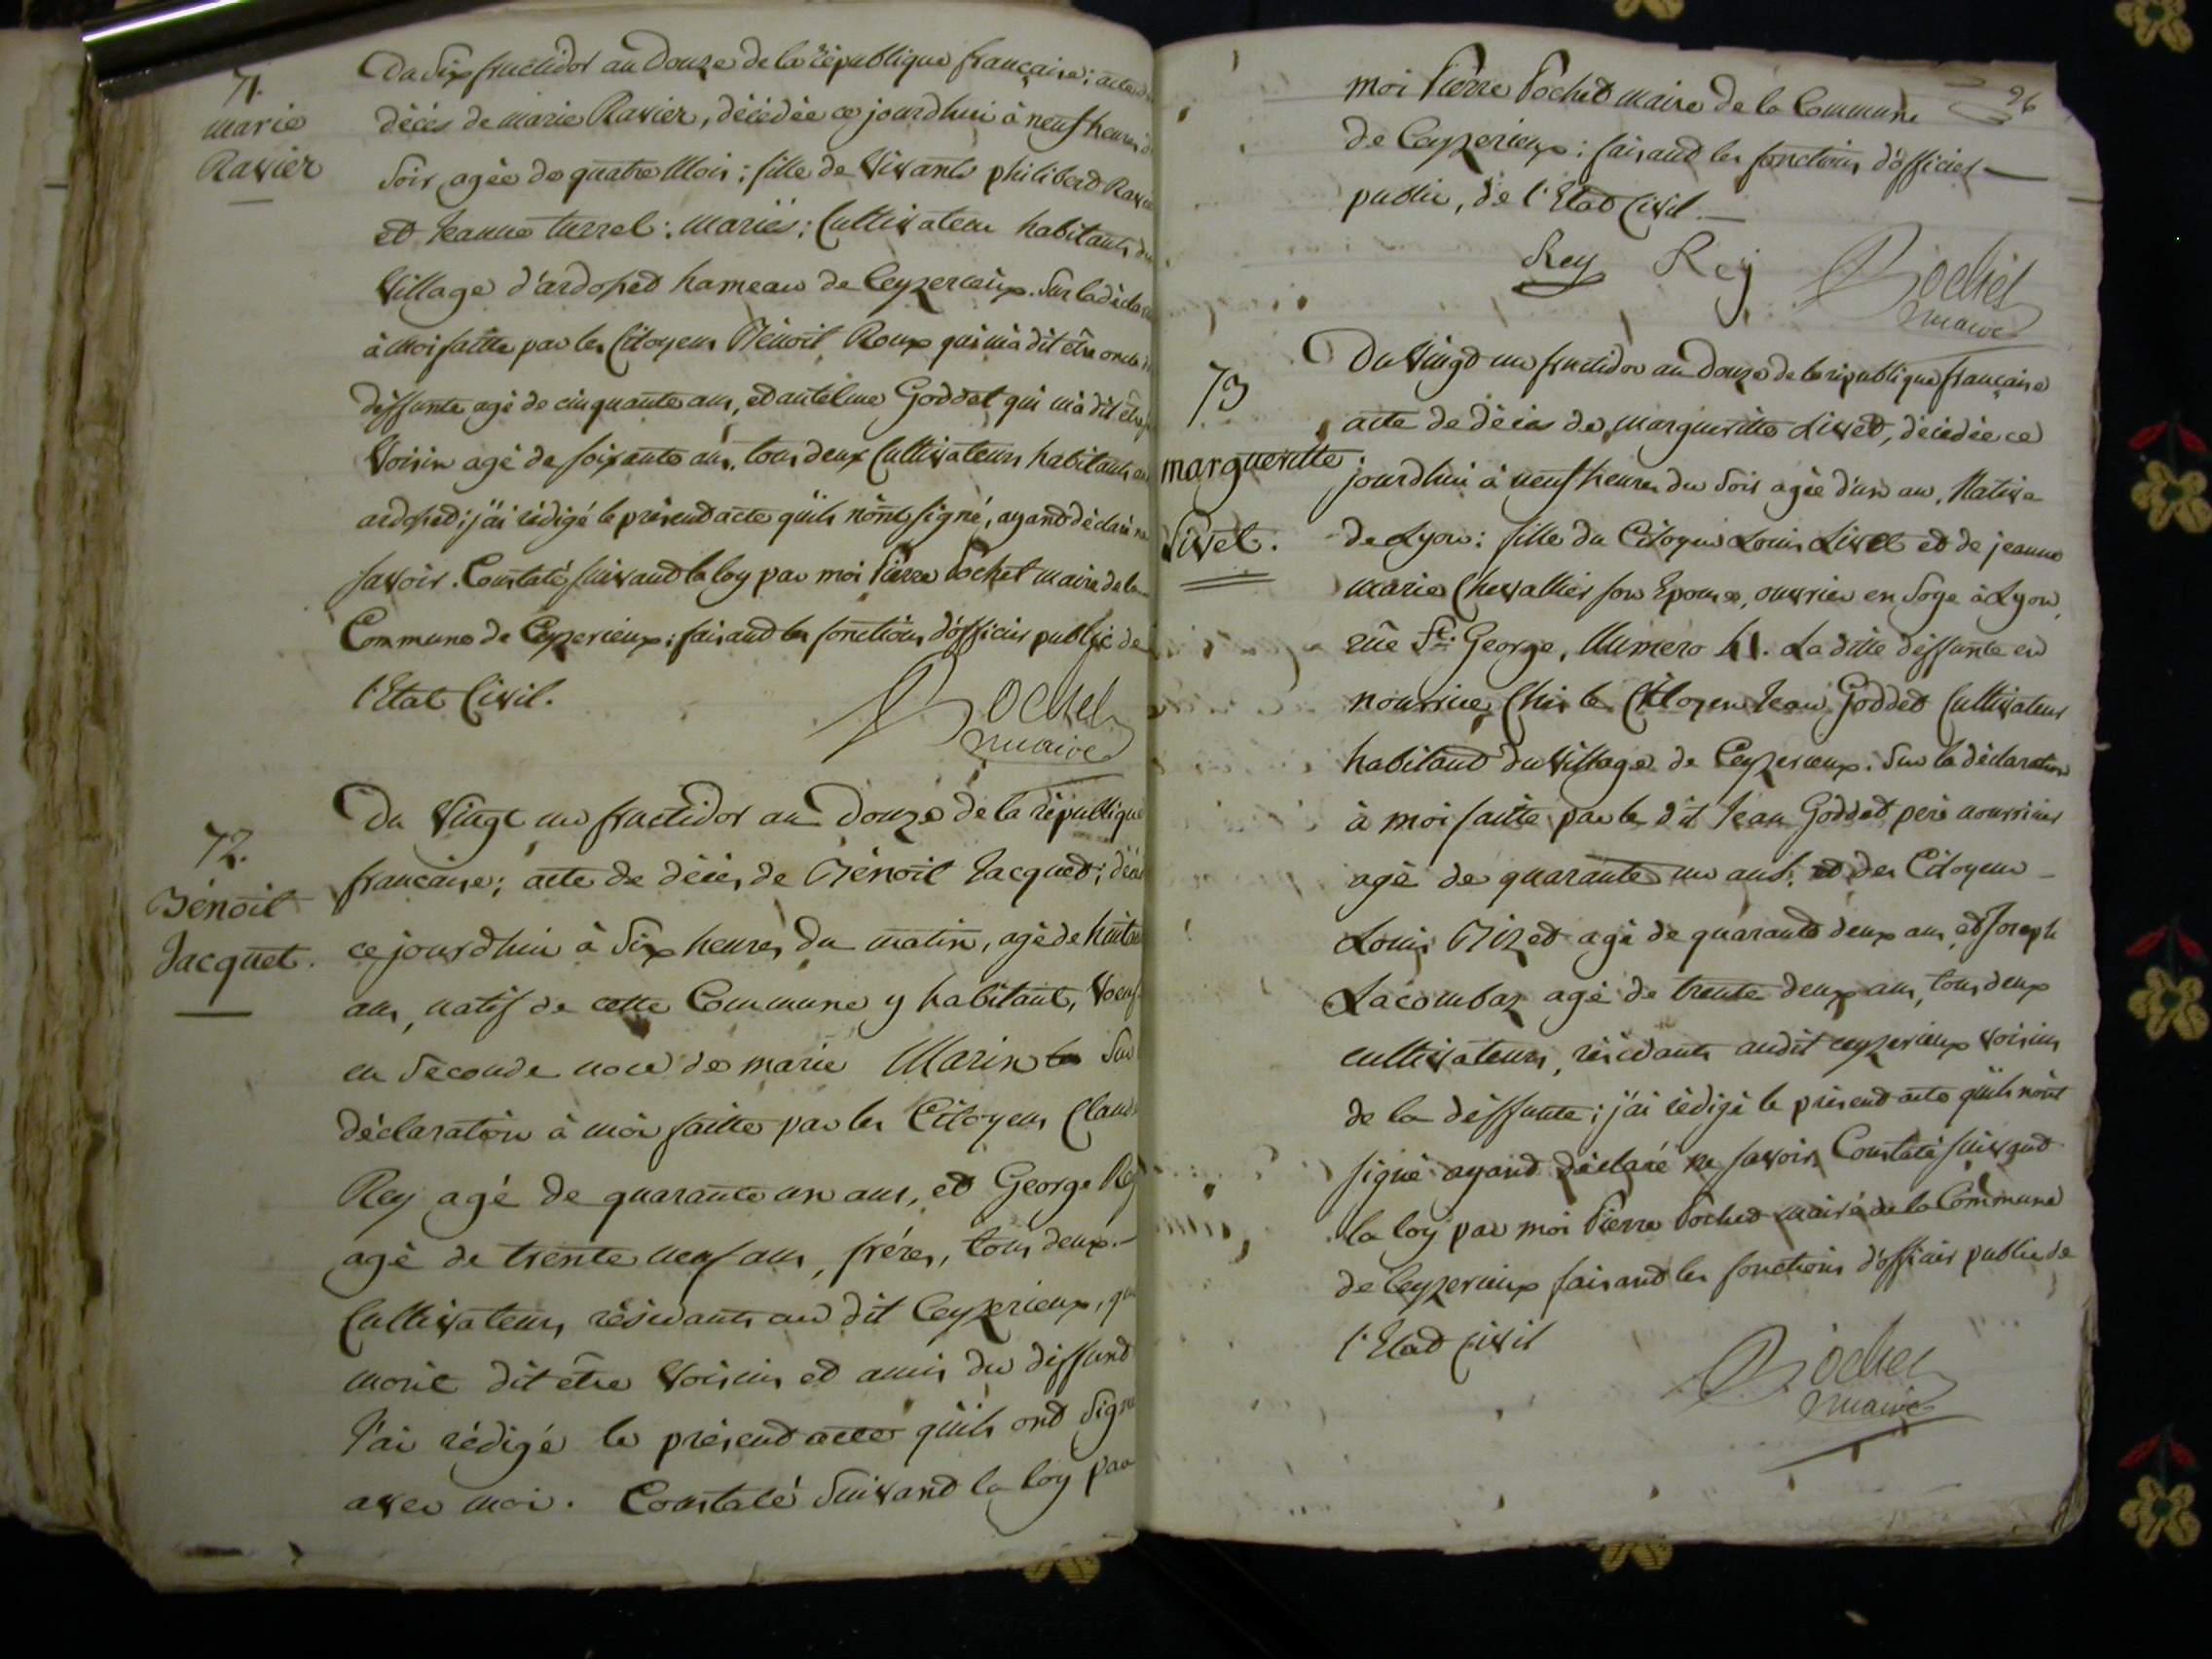 71.
marie
Ravier
Du Six fructidor an Douze de la république française; acte de
décès de marie Ravier, décédée ce jourdhui à neuf heures du
Soir, agée de quatre Mois; fille de Vivants philiberd Ravier
ed Jeanne turrel; mariés; Cultivateur habitants du
Village d'ardosed hameau de Ceyzerieux. Sur la décla
à moi faitte par les Citoyens Bénoit Roux qui m'a dit être oncle
deffunte agé de cinquante ans, ed antelme Goddet qui m'a dit être
Voisin agé de soixante ans, tous deux Cultivateurs habitants
ardosed; j'ai rédigé le présend acte qu'ils n'ont signé, ayand déclaré ne
savoir. Constaté suivand la loy par moi Pierre Pochet maire de la
Commune de Ceyzerieux; faisand les fonctions d'officier public de
l'Etat Civil.
Pochet
maire
72.
Bénoit
Jacquet.
Du Vingt un fructidor an Douze de la république
française; acte de décès de Bénoit Jacqued;
ce jourdhui à Six heures du matin, agé de
ans, natif de cette Commune y habitant, Voeuf
en Seconde noce de marie Marin Sur
déclaration à moi faitte par les Citoyens Claude
Rey agé de quarante un ans, ed George Rey
agé de trente neuf ans, fréres, tous deux
Cultivateurs, résidants au dit Ceyzerieux, qui
mont dit être Voisins ed amis du deffund
J'ai rédigé le présend acte qu'ils ond Signé
avec moi. Constaté Suivand la loy par
96
moi Pierre Poched maire de la Commune
de Ceyzerieux; faisand les fonctions d'officier
public, de l'Etad Civil.
Rey Rey Pochet
maire
73
margueritte
Livet.
Du Vingd un fructidor an Douze de la république française
acte de décès de margueritte Lived, décédée ce
jourdhui à neuf heures du Soir agée d'un an, Native
de Lyon: fille du Citoyen Louis Livet ed de jeanne
marie Chevallier son Epouse, ouvrier en Soye à Lyon,
rüe St. George, Numero 41. La ditte deffunte en
nourrice Chès le Citoyen Jean Godded Cultivateur
habitand du Village de Ceyzerieux. Sur la déclaration
à moi faitte par le dit Jean Godded pere nourricier
agé de quarante un ans; ed des Citoyens
Louis Bized agé de quarante deux ans, ed Joseph
Lacombaz agé de trente deux ans, tous deux
cultivateurs, résidants audit ceyzerieux voisins
de la deffunte; j'ai rédigé le présend acte qu'ils n'ont
signé ayand déclaré ne savoir, Constaté suivand
la loy par moi Pierre Poched maire de la Commune
de Ceyzerieux faisand les fonctions d'officier public de
l'Etad civil
Pochet
maire